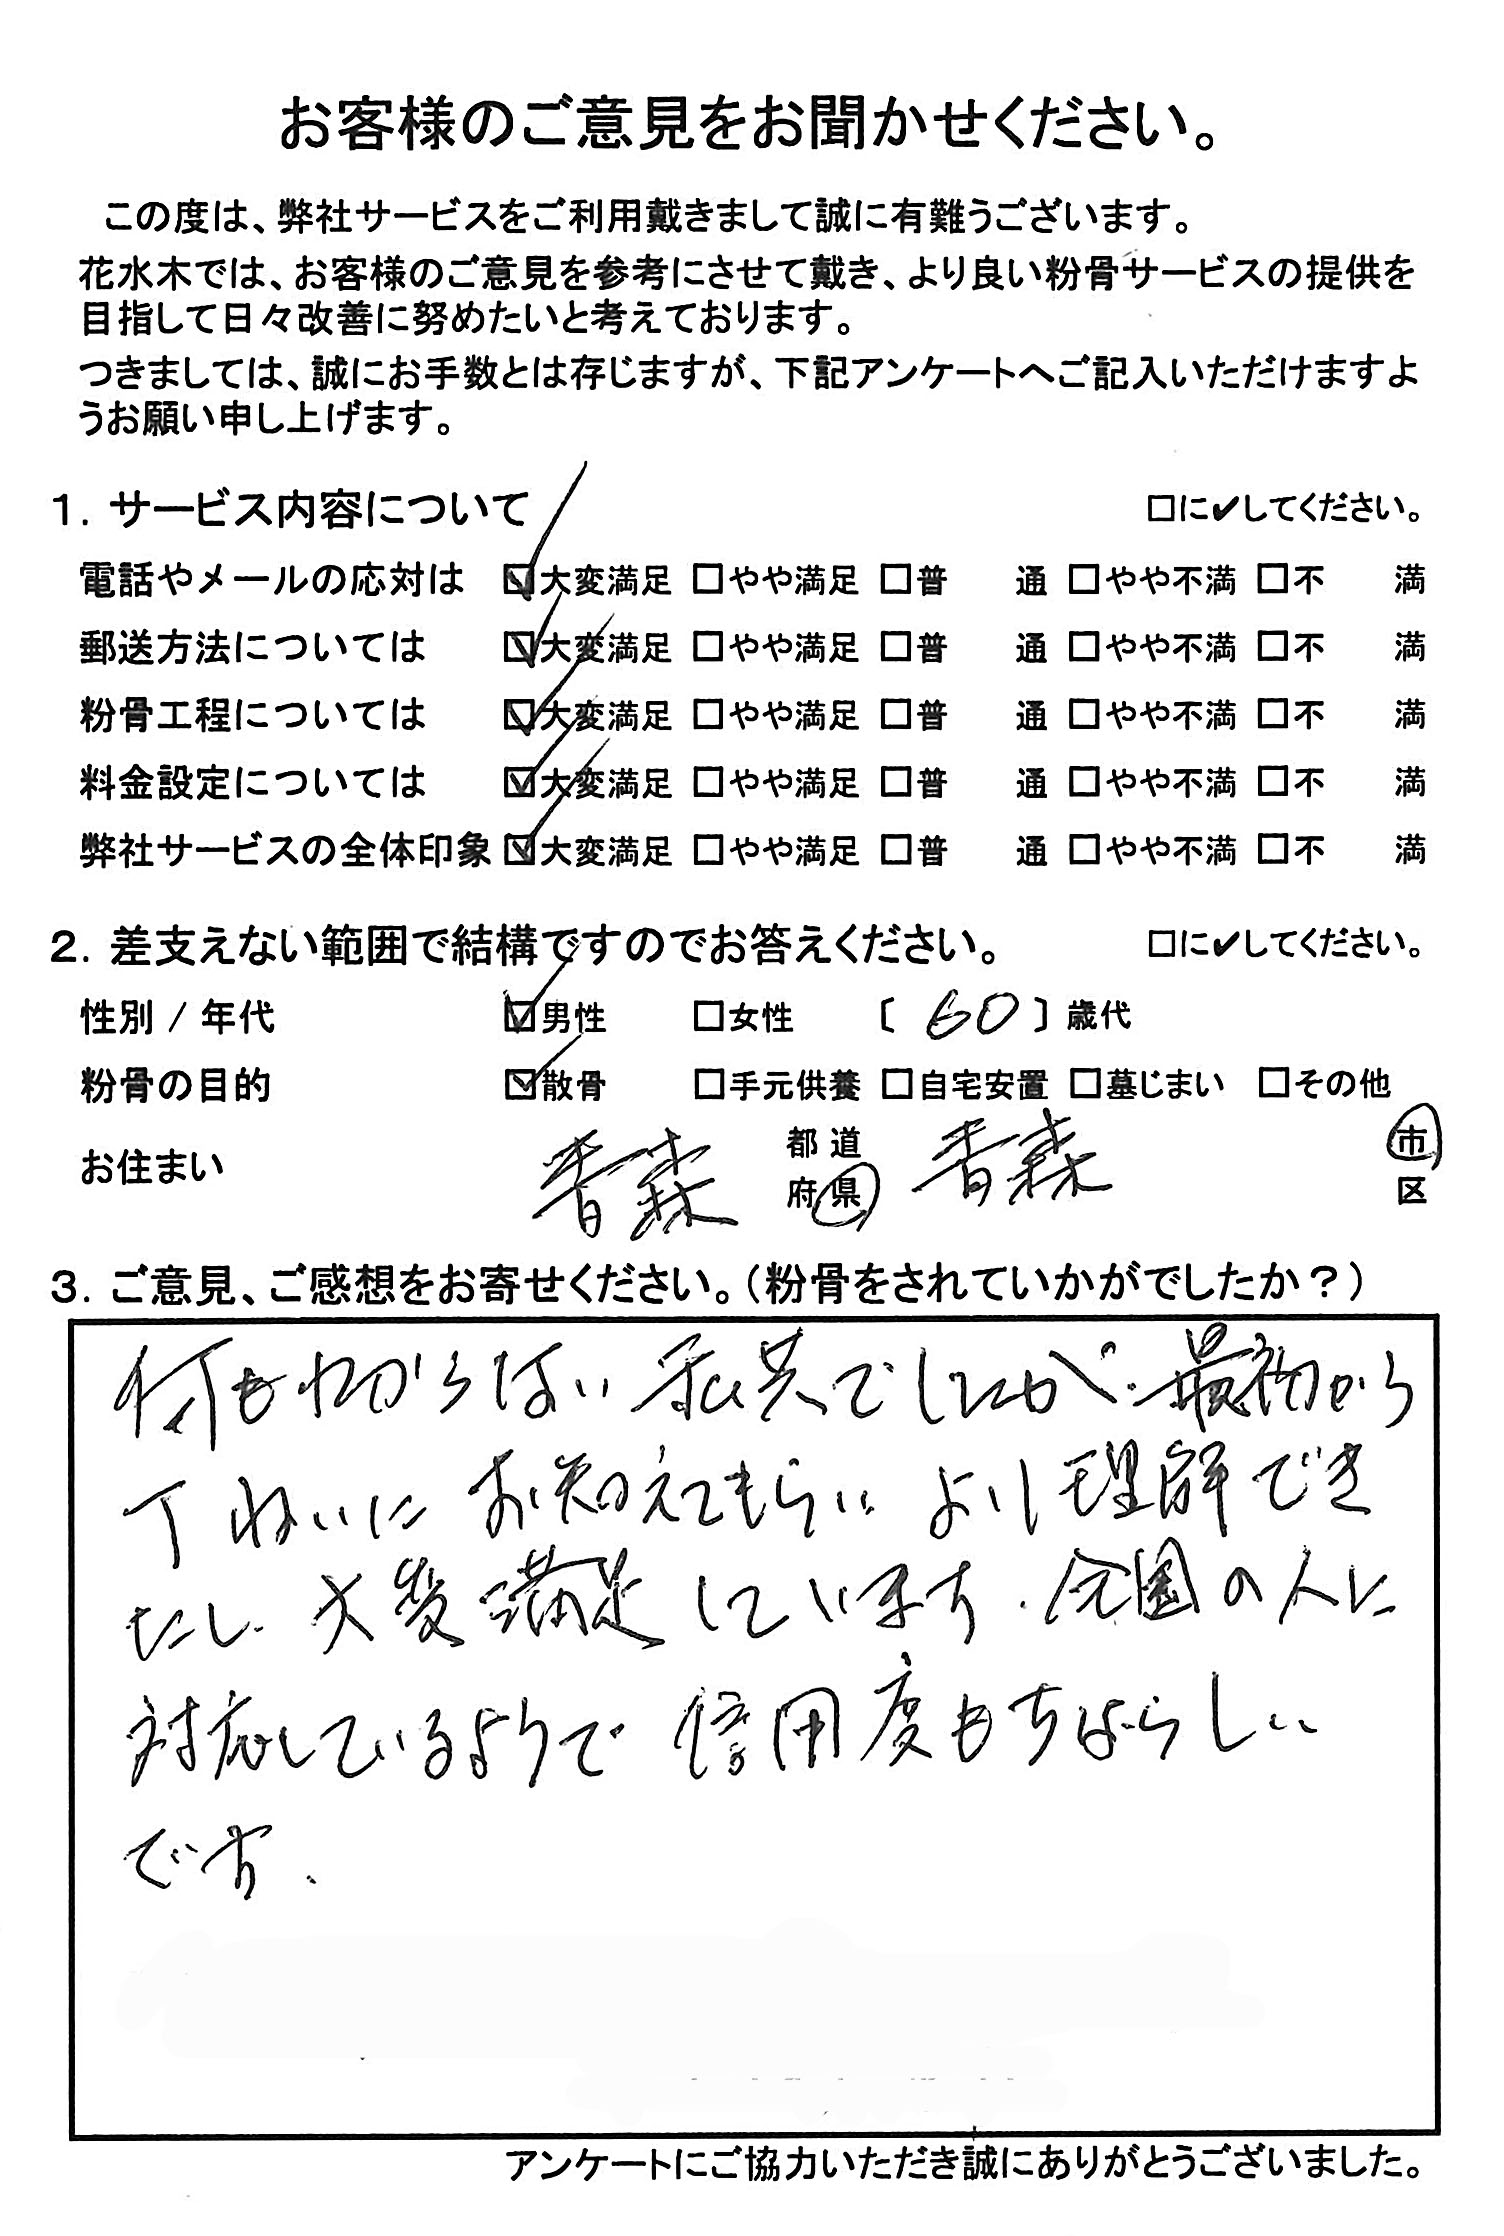 お客様のご意見をお聞かせください。
この度は、弊社サービスをご利用戴きまして誠に有難うございます。
花水木では、お客様のご意見を参考にさせて戴き、より良い粉骨サービスの提供を
目指して日々改善に努めたいと考えております。
つきましては、誠にお手数とは存じますが、下記アンケートへご記入いただけますよ
うお願い申し上げます。
1. サービス内容について □に✔してください。
電話やメールの応対は ☑大変満足 □やや満足 □普 通 □やや不満 □不 満
郵送方法については ☑大変満足 □やや満足 □普 通 □やや不満 □不 満
粉骨工程については ☑大変満足 □やや満足 □普 通 □やや不満 □不 満
料金設定については ☑大変満足 □やや満足 □普 通 □やや不満 □不 満
弊社サービスの全体印象 ☑大変満足 □やや満足 □普 通 □やや不満 □不 満
2. 差支えない範囲で結構ですのでお答えください。 □に✔してください。
性別 / 年代 ☑男性 □女性 〔 60 〕歳代
粉骨の目的 ☑散骨 □手元供養 □自宅安置 □墓じまい □その他
お住まい 青森 都道府県 青森 市区
3. ご意見、ご感想をお寄せください。（粉骨をされていかがでしたか？）
何もわからない 私共でしたが、最初から
丁ねいに お知えてもらい より理解でき
たし、大変満足しています。全国の人に
対応しているようで 信用度もすばらしい
です.
アンケートにご協力いただき誠にありがとうございました。